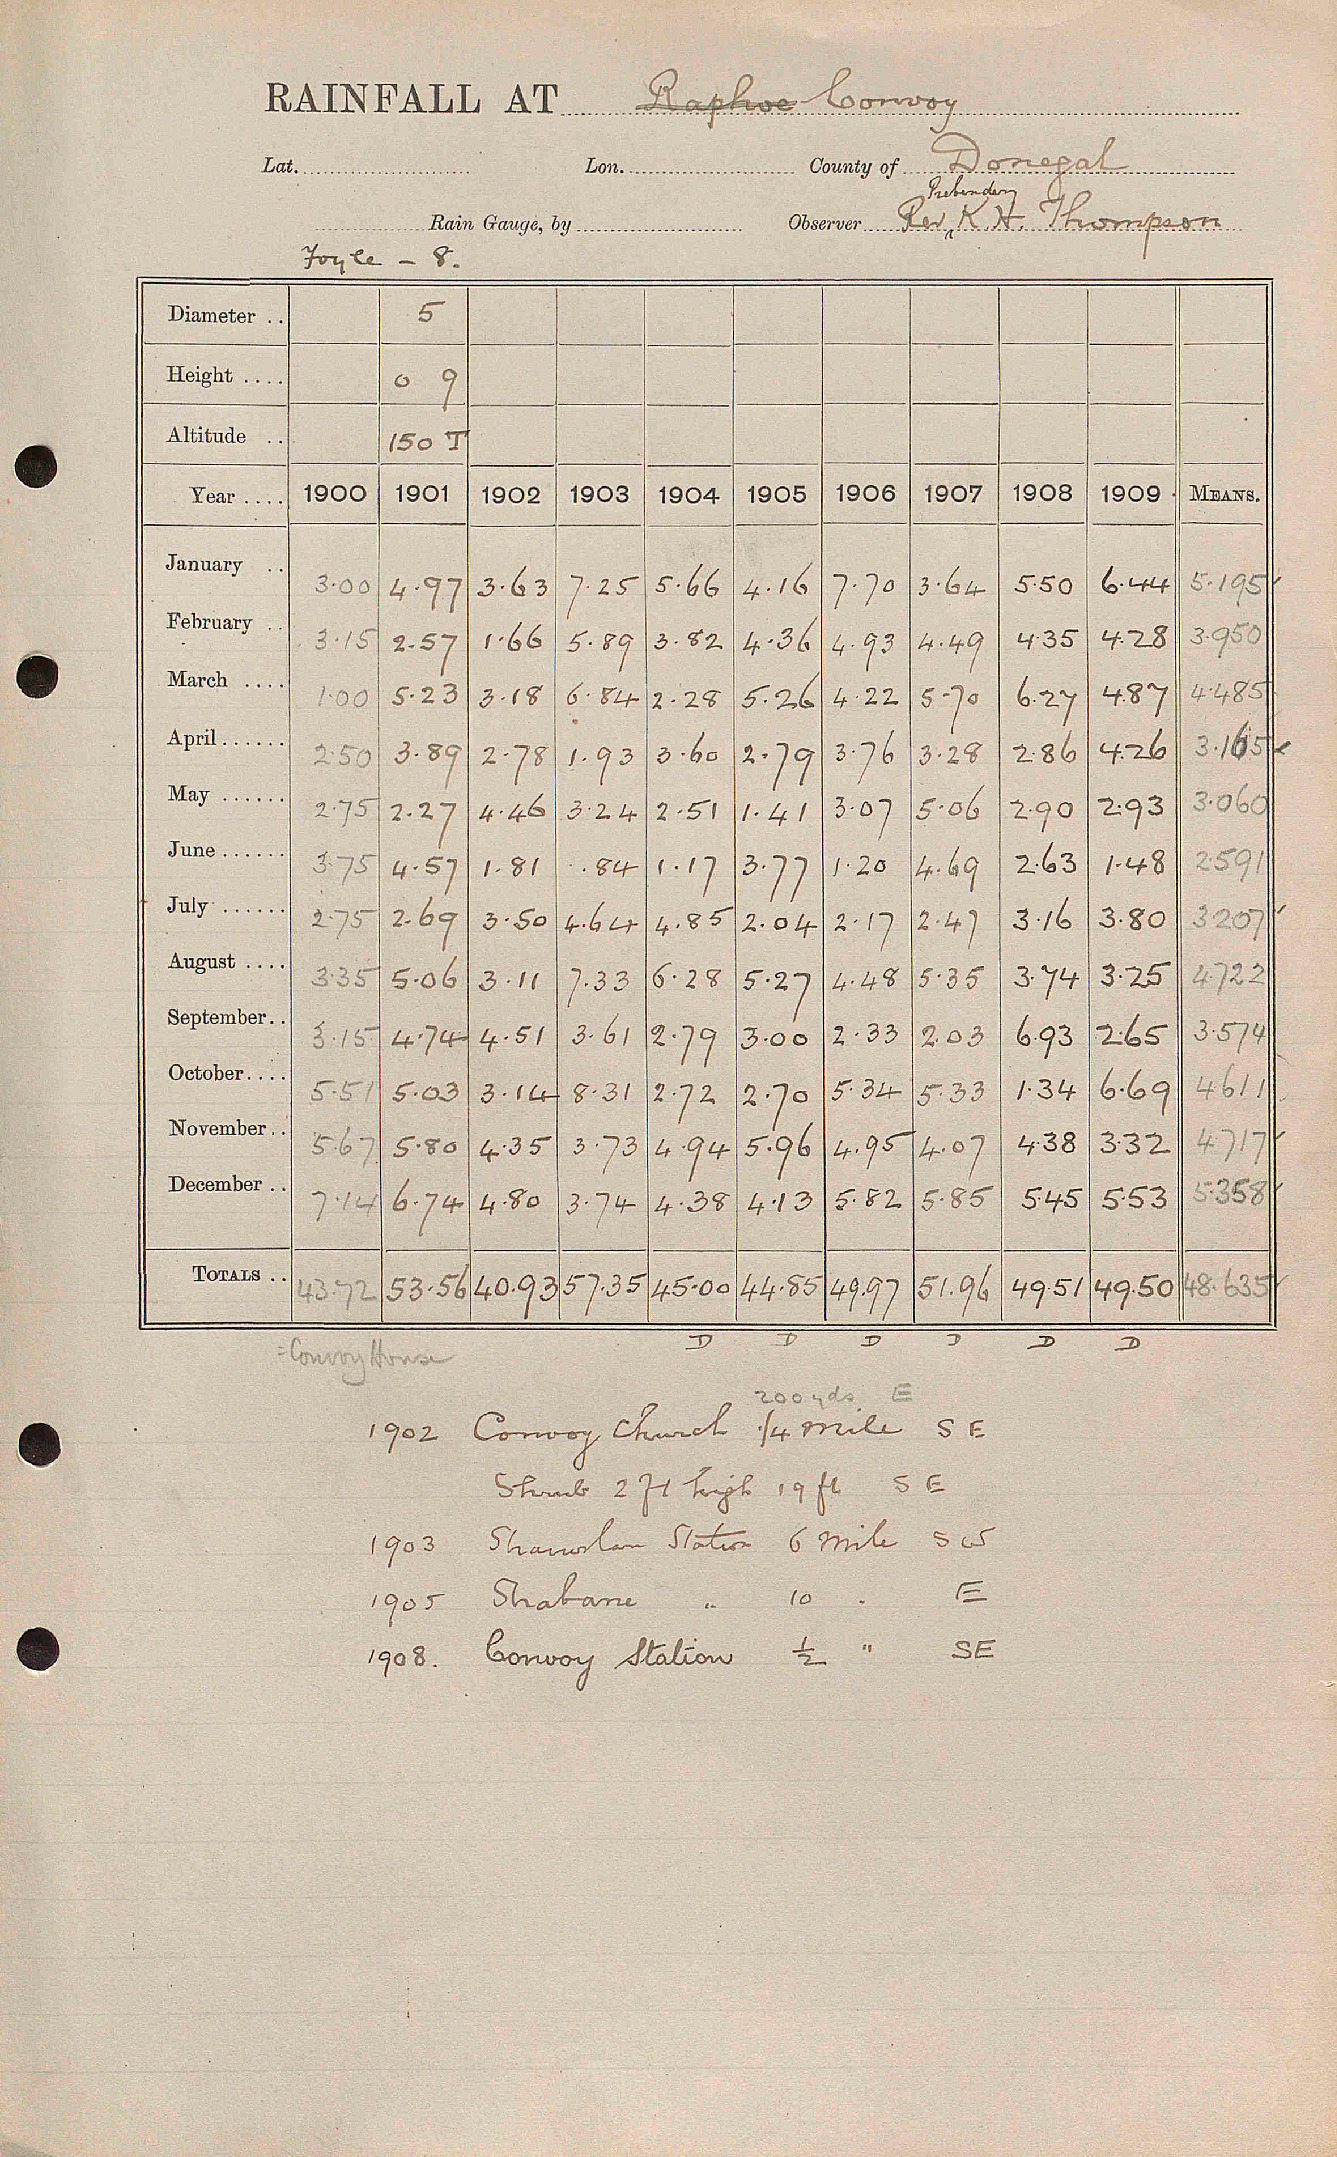 RAINFALL AT Raphoe Convoy
Lat. Lon. County of Donegal
Prebendary
Rain Gauge, by Observer Rev K. H. Thompson
Foyle - 8.
Diameter .. 5
Height .... 0 9
Altitude .. 150 T
Year .... 1900 1901 1902 1903 1904 1905 1906 1907 1908 1909 MEANS.
January .. 3.00 4.97 3.63 7.25 5.66 4.16 7.70 3.64 5.50 6.44 5.195
February .. 3.15 2.57 1.66 5.89 3.82 4.36 4.93 4.49 4.35 4.28 3.950
March .... 1.00 5.23 3.18 6.84 2.28 5.26 4.22 5.70 6.27 4.87 4.485
April ...... 2.50 3.89 2.78 1.93 3.60 2.79 3.76 3.28 2.86 4.26 3.165
May ...... 2.75 2.27 4.46 3.24 2.51 1.41 3.07 5.06 2.90 2.93 3.060
June ...... 3.75 4.57 1.81 .84 1.17 3.77 1.20 4.69 2.63 1.48 2.591
July ...... 2.75 2.69 3.50 4.64 4.85 2.04 2.17 2.47 3.16 3.80 3.207
August .... 3.35 5.06 3.11 7.33 6.28 5.27 4.48 5.35 3.74 3.25 4.722
September.. 3.15 4.74 4.51 3.61 2.79 3.00 2.33 2.03 6.93 2.65 3.574
October.... 5.51 5.03 3.14 8.31 2.72 2.70 5.34 5.33 1.34 6.69 4.611
November.. 5.67 5.80 4.35 3.73 4.94 5.96 4.95 4.07 4.38 3.32 4.717
December .. 7.14 6.74 4.80 3.74 4.38 4.13 5.82 5.85 5.45 5.53 5.358
TOTALS .. 43.72 53.56 40.93 57.35 45.00 44.85 49.97 51.96 49.51 49.50 48.635
D D D D D D
=Convoy House
200 yds E
1902 Convoy Church 1/4 mile S E
Shrub 2 ft high 19 ft S E
1903 Station 6 mile S W
1905 Strabane " 10 " E
1908. Convoy Station ½ " SE